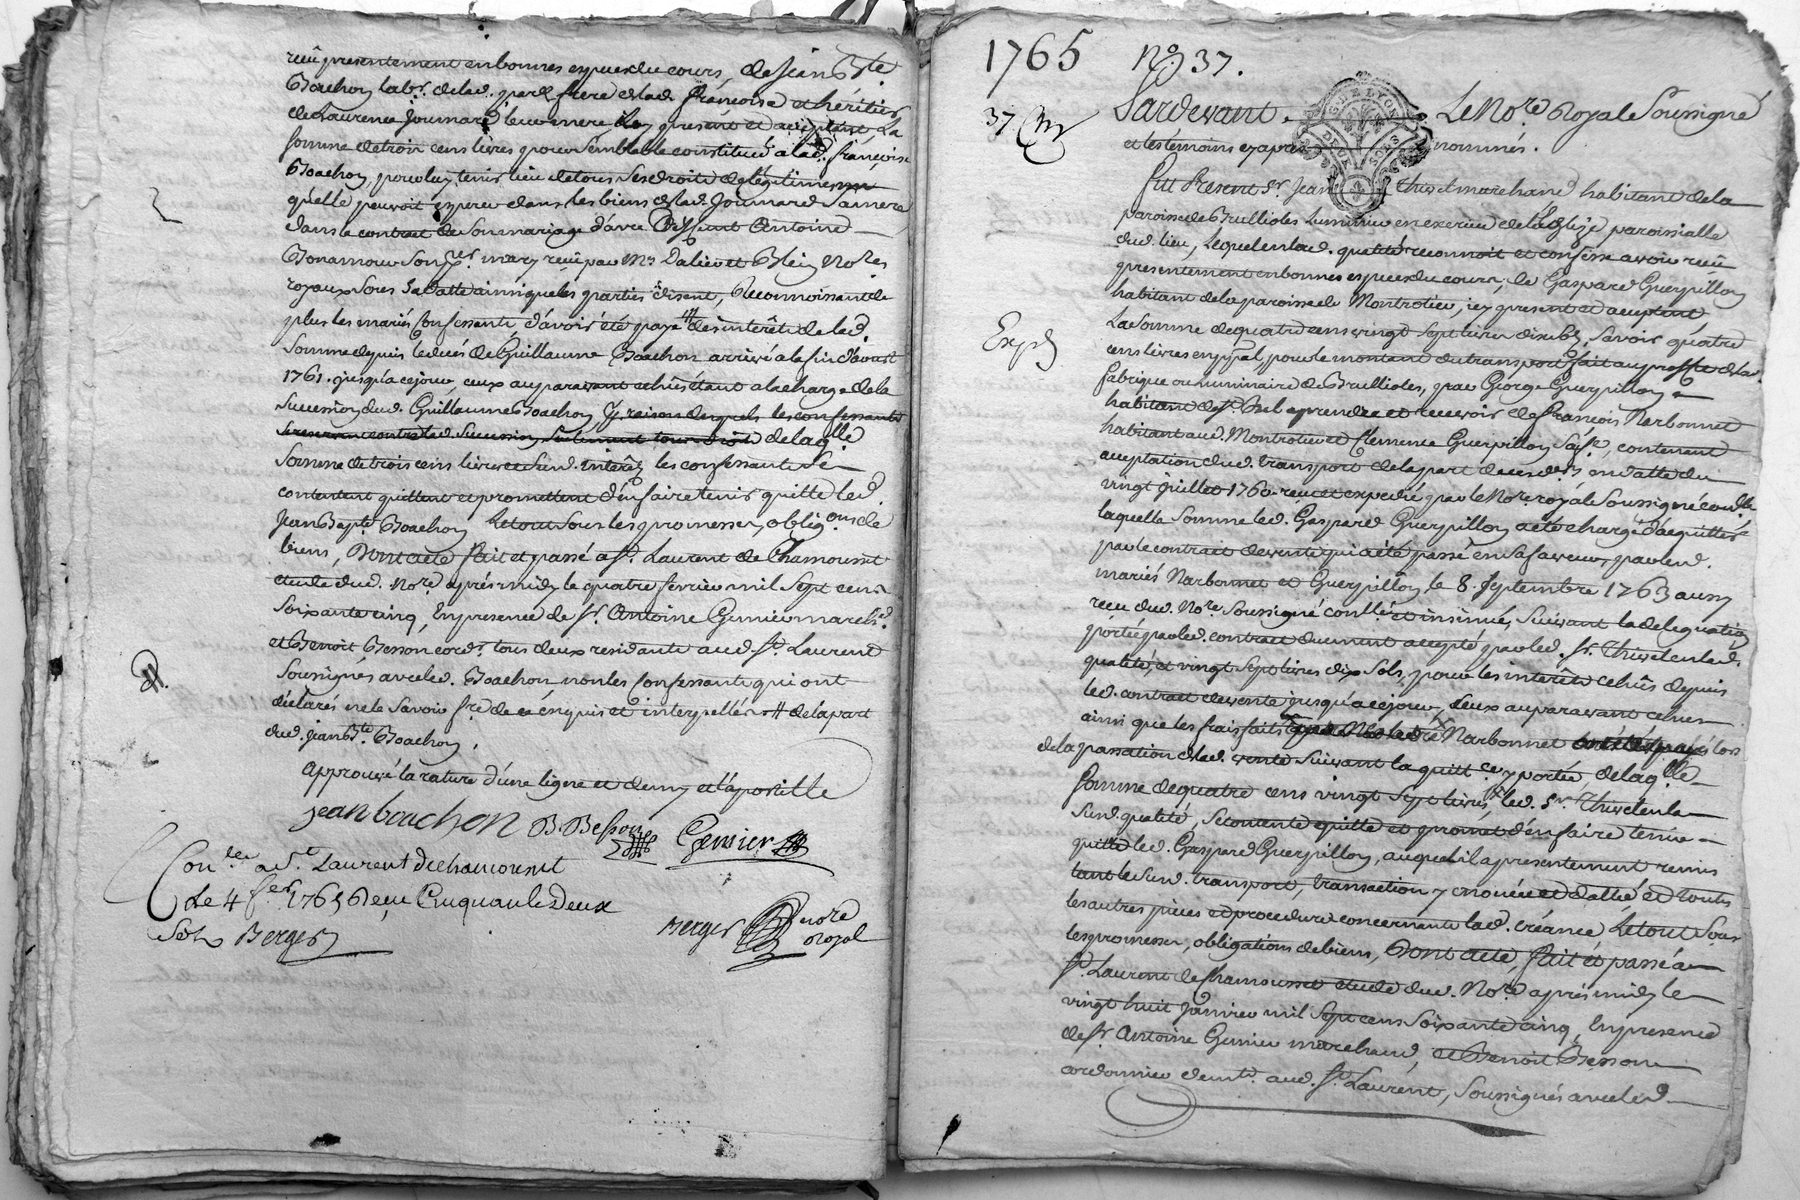 reçû presentement en bonnes especes du cours, de Jean Bte.
Boachon labr. delad. parse frere delad. françoise et héritier
de Laurence Joumard leur mere icy present et acceptant La
somme de trois cens livres pour semblable constituée a lad. françoise
Boachon, pour luy tenir lieu de tous ses droits de légitime
qu'elle pouvoit esperer dans les biens delad. Joumard sa mere
dans le contrat de son mariage d'avec Antoine
Bonamour son mary reçû par Mrs Dalier et Blein Nores
royaux sous sa datte ainsi que les parties disent, Reconnoissant de
plus les mariés Confessants d'avoir été payé des interêts de lad.
Somme depuis le decés de Guillaume Boachon arrivé a la fin d'aoust
1761. jusqu'a ce jour, ceux auparavant echûs étant a la charge de la
Succession dud. Guillaume Boachon
de laqlle
Somme de trois cens livres et sus d. interêts les confessants se
contentent quittent et promettent d'en faire tenir quitte led.
Jean Bapte Boachon Le tout sous les promesses, oblig.ons de
biens, Dont acte fait et passé a St. Laurent de Chamousset
etude dud. Nore. après midy le quatre fevrier mil Sept cens
Soixante cinq, En presence de Sr. Antoine Genier marchd.
et Benoit Besson cordr. tous deux residants aud. St. Laurent
Soussignés avec led. Boachon non les Confessants qui ont
déclarés ne le Savoir fre. de ce énquis et interpellés # de la part
dud. jean Bte. Boachon,
approuvé la rature d'une ligne et demy et l'apostille
jean boachon B. Besson Genier
Conlé a St Laurent de chamousset
Le 4 fer. 1765 Reçu Cinquante Deux
Sols Berger
Berger nore
Royal
1765 No. 37.
37
Pardevant Le Nore. Royal Soussigné
et les temoins cy après nommés.
fut Present Sr. Jean Thivel marchand habitant de la
paroisse de Brullioles Luminier en exercice de l'Eglize paroissialle
dud. lieu, Lequel en lad. qualité reconnoit et confesse avoir reçu
presentement en bonnes especes du cours, de Gaspard Guerpillon
habitant de la paroisse de Montrotier, icy present et acceptant
La Somme de quatre cens vingt Sept livres dix sols, Savoir quatre
cens livres en ppal, pour le montant du transport fait au proffit de la
fabrique ou luminaire de Brullioles, par George Guerpillon
habitant de St. Bel a prendre et recevoir de françois Narbonnet
habitant aud. Montrotier et Clemence Guerpillon Sa fe., contenant
acceptation dud. transport de la part de ces ders. en datte du
vingt Juillet 1760. reçu et expedié par le Nore. royal Soussigné
laquelle Somme led. Gaspard Guerpillon a été chargé d'acquitter
par le contrat de vente qui a été passé en sa faveur, par led.
mariés Narbonnet et Guerpillon le 8. Septembre 1763 aussy
reçu dud. Nore. Soussigné conllé et insinué, Suivant la delegation
portée par led. contrat duement accepté par led. Sr. Thivel en lad.
qualité, et vingt Sept livres dix Sols, pour les interêts echûs depuis
led. contrat de vente jusqu'a ce jour, Ceux auparavant echus
ainsi que les frais faits Narbonnet lors
de la passation de lad. vente Suivant la quittce y portée, de laqlle
Somme de quatre cens vingt Sept livres, led. Sr. Thivel en la
susd. qualité, Se contente quitte et promet d'en faire tenir
quitte led. Gaspard Guerpillon, auquel il a presentement remis
tant le Susd. transport, transaction y enoncée et dattée, et touts
les autres pieces et procedures concernants lad. créance Le tout Sous
les promesses, obligations de biens, Dont acte, fait et passé a
St. Laurent de Chamousset etude dud. Nore. après midy le
vingt huit Janvier mil Sept cens Soixante cinq, En presence
de Sr. Antoine Genier marchand, et Benoit Besson
cordonnier demt. aud. St. Laurent, Soussignés avec led.
Expé
GNLE LYON
DEUX SOLS